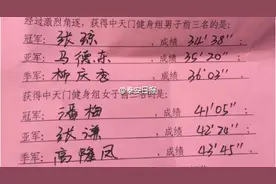 经过激烈角逐，获得中天门健身组男子前三名的是：
冠军：张琼，成绩 34'38"
亚军：马德东，成绩 35'20"
季军：柳庆春，成绩 36'03"
获得中天门健身组女子前三名的是：
冠军：潘梅，成绩 41'05"
亚军：张谦，成绩 42'28"
季军：高隆凤，成绩 43'45"